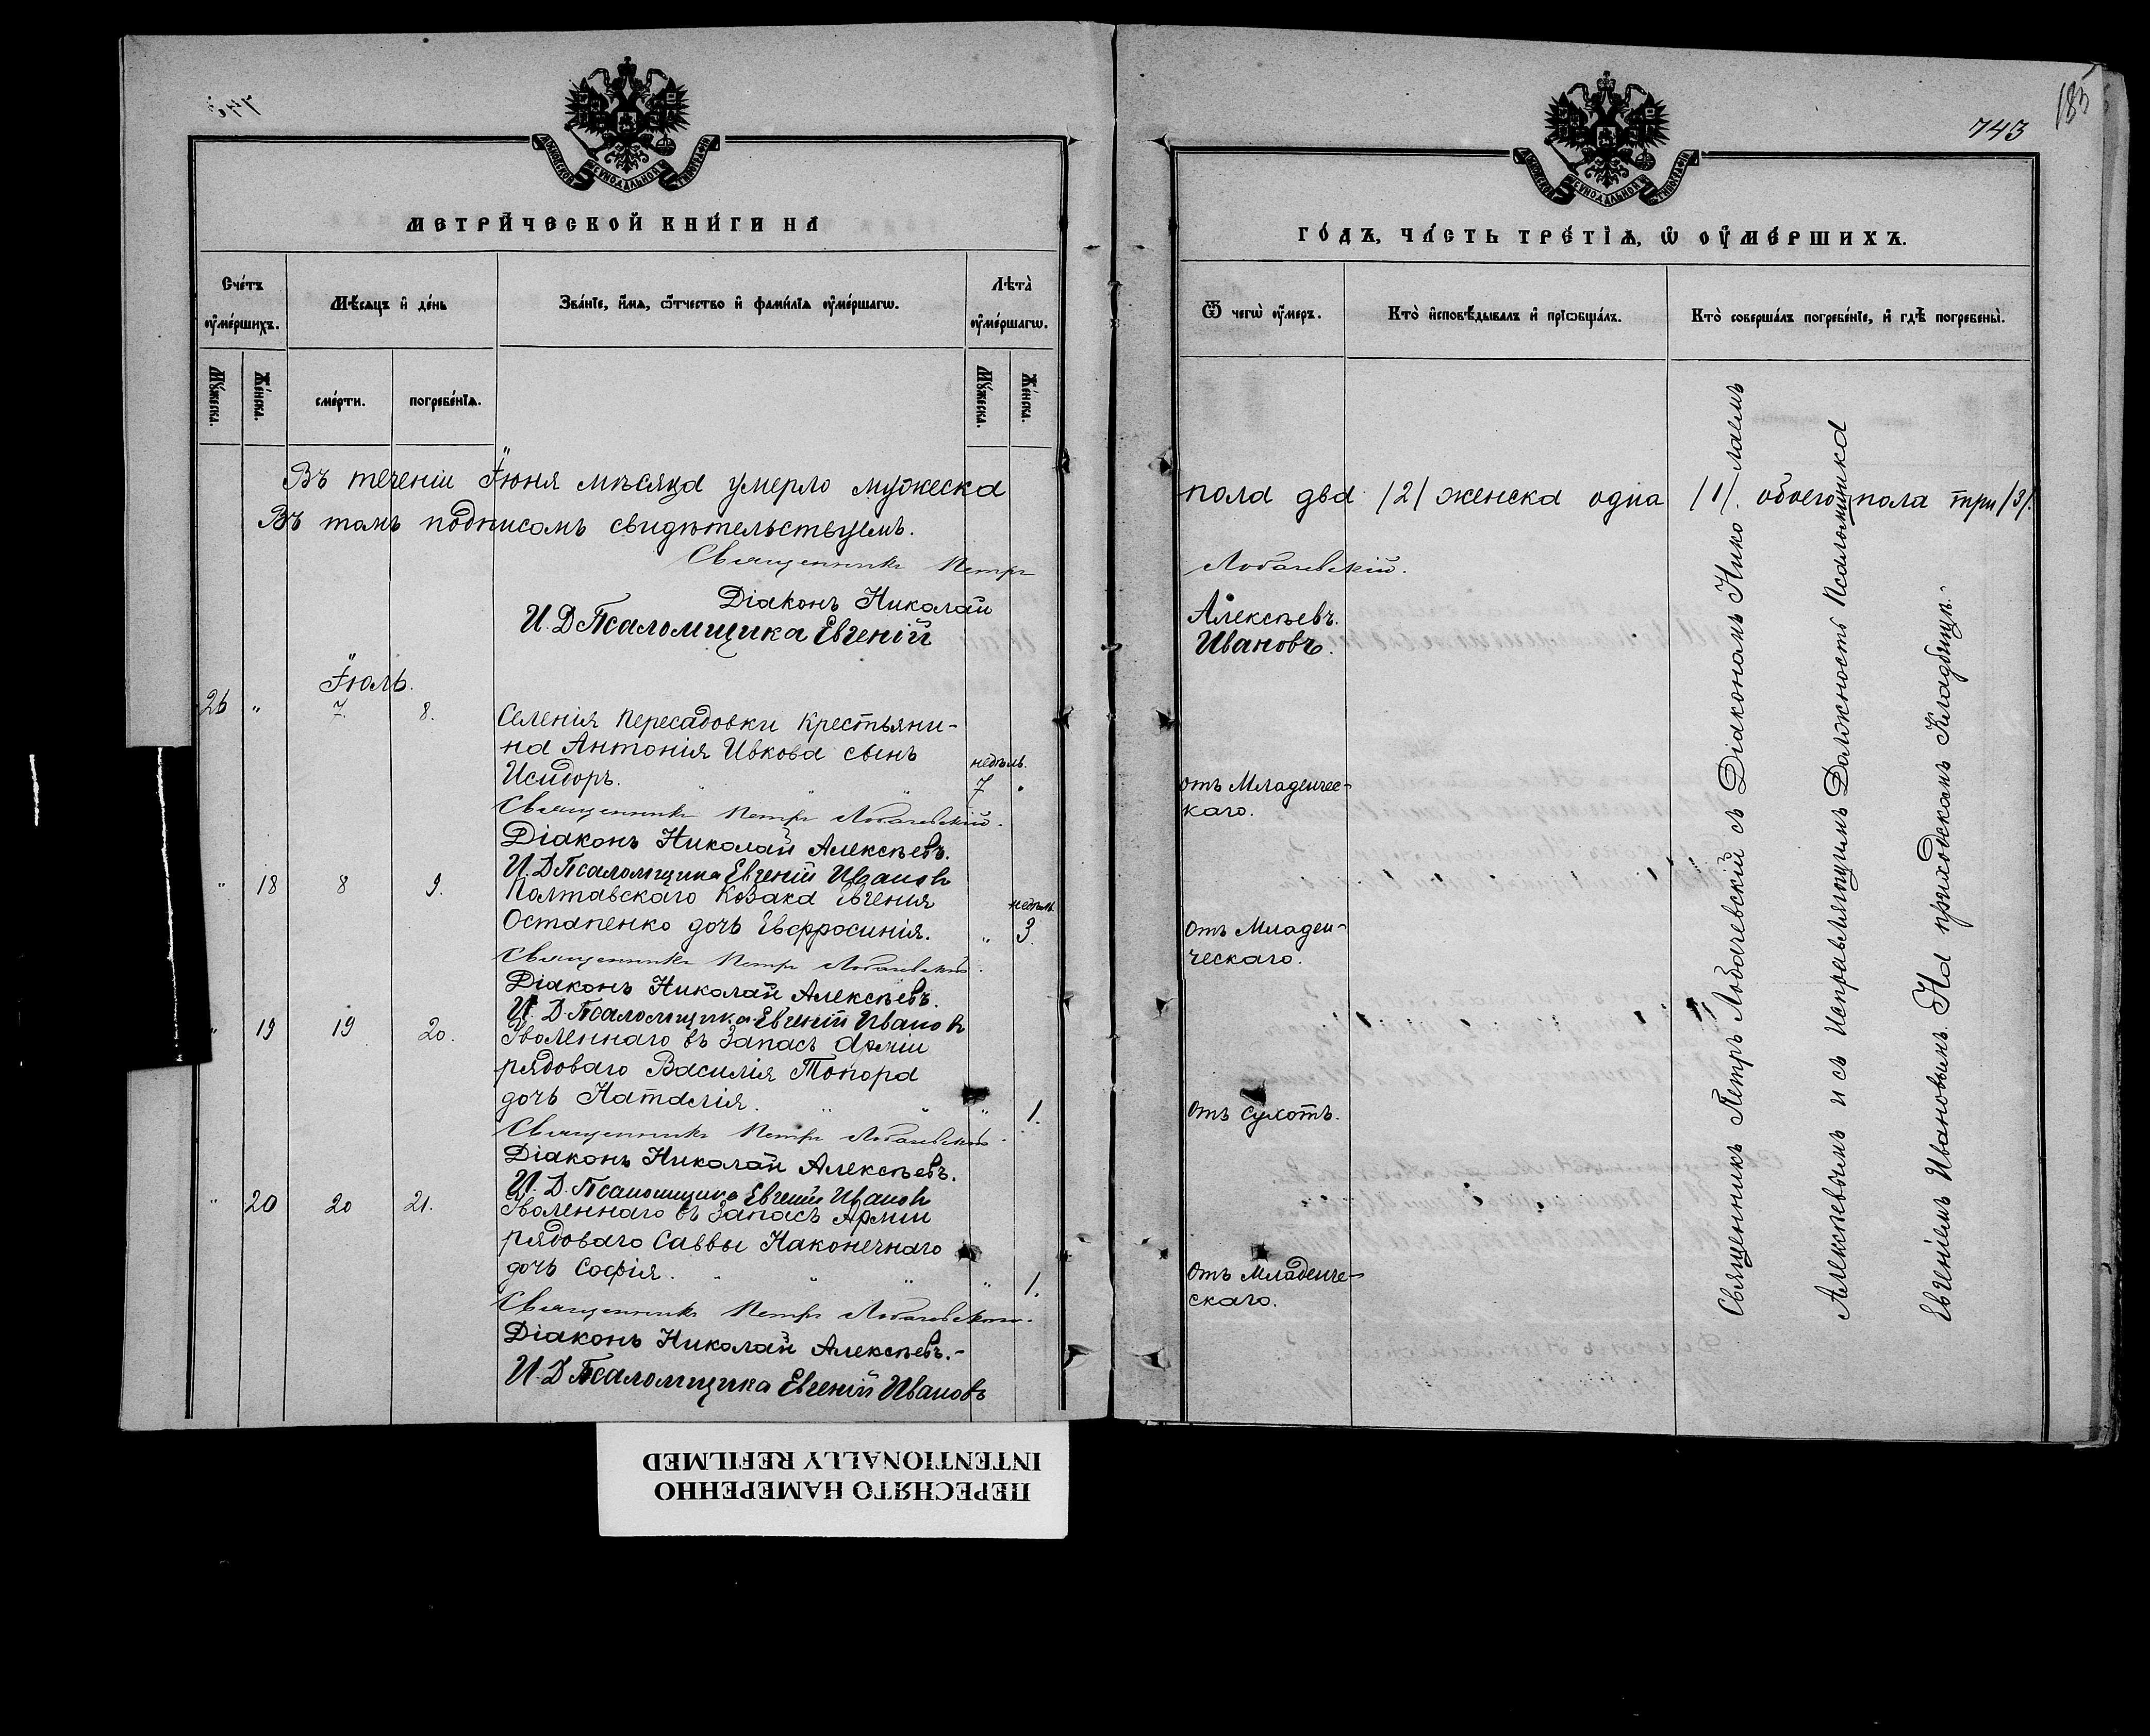 743
185
МОСКОВСКОЙ СѴНОДАЛЬНОЙ ТИПОГРАФІИ
МЕТРИ́ЧЕСКОЙ КНИ́ГИ НА
Сче́тъ ᲂу҆ме́ршихъ.
Мѣ́сяцъ и҆ де́нь
Зва́нїе, и҆́мѧ, ѻ҆́тчество и҆ фами́лїѧ ᲂу҆ме́ршагѡ.
Лѣта̀ ᲂу҆ме́ршагѡ.
Мꙋ́жеска.
Же́нска.
сме́рти.
погребе́нїѧ.
Мꙋ́жеска.
Же́нска.
Въ теченіи Іюня мѣсяца умерло мужеска
Въ томъ подписомъ свидѣтельствуемъ.
Священникъ Петръ
Діаконъ Николай
И. Д Псаломщика Евгеній
Іюль.
26 " 7. 8. Селенія Пересадовки крестьяни-
на Антонія Ивкова сынъ
недѣль.
Исидоръ. " " " 7 "
Священникъ Петръ Лобачевскій.
Діаконъ Николай Алексѣевъ.
И. Д Псаломщика Евгеній Ивановъ
" 18 8 9. Полтавскаго Козака Евгенія
недѣль
Остапенко дочь Евфросинія. " 3.
Священникъ Петръ Лобачевскій.
Діаконъ Николай Алексѣевъ.
И. Д. Псаломщика Евгеній Ивановъ
" 19 19 20. Уволеннаго въ Запасъ Арміи
рядоваго Василія Топора
дочь Наталія. " " " 1.
Священникъ Петръ Лобачевскій.
Діаконъ Николай Алексѣевъ.
И. Д. Псаломщика Евгеній Ивановъ
" 20 20 21. Уволеннаго въ Запасъ Арміи
рядоваго Саввы Наконечнаго
дочь Софія. " " " " 1.
Священникъ Петръ Лобачевскій.
Діаконъ Николай Алексѣевъ.-
И. Д Псаломщика Евгеній Ивановъ
МОСКОВСКОЙ СѴНОДАЛЬНОЙ ТИПОГРАФІИ
ГО́ДЪ, ЧА́СТЬ ТРЕ́ТЇѦ, Ѡ҆ ОУ҆МЕ́РШИХЪ.
Ѿ чегѡ̀ ᲂу҆́меръ.
Кто̀ и҆сповѣ́дывалъ и҆ прїѡбща́лъ.
Кто̀ соверша́лъ погребе́нїе, и҆ гдѣ̀ погребены̀.
пола два /2/ женска одна /1/. обоего пола три /3/.
Лобачевскій.
Алексѣевъ.
Ивановъ.
отъ Младенчес-
каго.
отъ Младен-
ческаго.
отъ сухотъ.
отъ Младенче-
скаго.
Священникъ Петръ Лобачевскій съ Діакономъ Николаемъ
Алексѣевымъ и съ Исправляющимъ Должность Псаломщика
Евгеніемъ Ивановымъ. На приходскомъ Кладбищѣ.-
ПЕРЕСНЯТО НАМЕРЕННО
INTENTIONALLY REFILMED